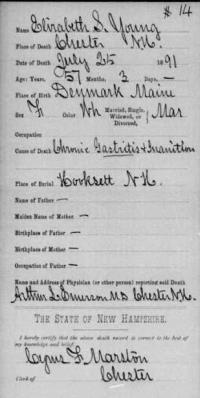 # 14
Name Elizabeth S. Young
Place of Death Chester N.H.
Date of Death July 25 1891
Age: Years, 57 Months, 3 Days, —
Place of Birth Denmark Maine
Sex F Color Wh Married, Single, Widowed, or Divorced, Mar
Occupation
Cause of Death Chronic Gastritis & Inanition
Place of Burial Hooksett N.H.
Name of Father —
Maiden Name of Mother —
Birthplace of Father —
Birthplace of Mother —
Occupation of Father —
Name and Address of Physician (or other person) reporting said Death
Arthur L. Emerson M.D. Chester N.H.
THE STATE OF NEW HAMPSHIRE.
I hereby certify that the above death record is correct to the best of
my knowledge and belief.
Cyrus F. Marston
Clerk of Chester